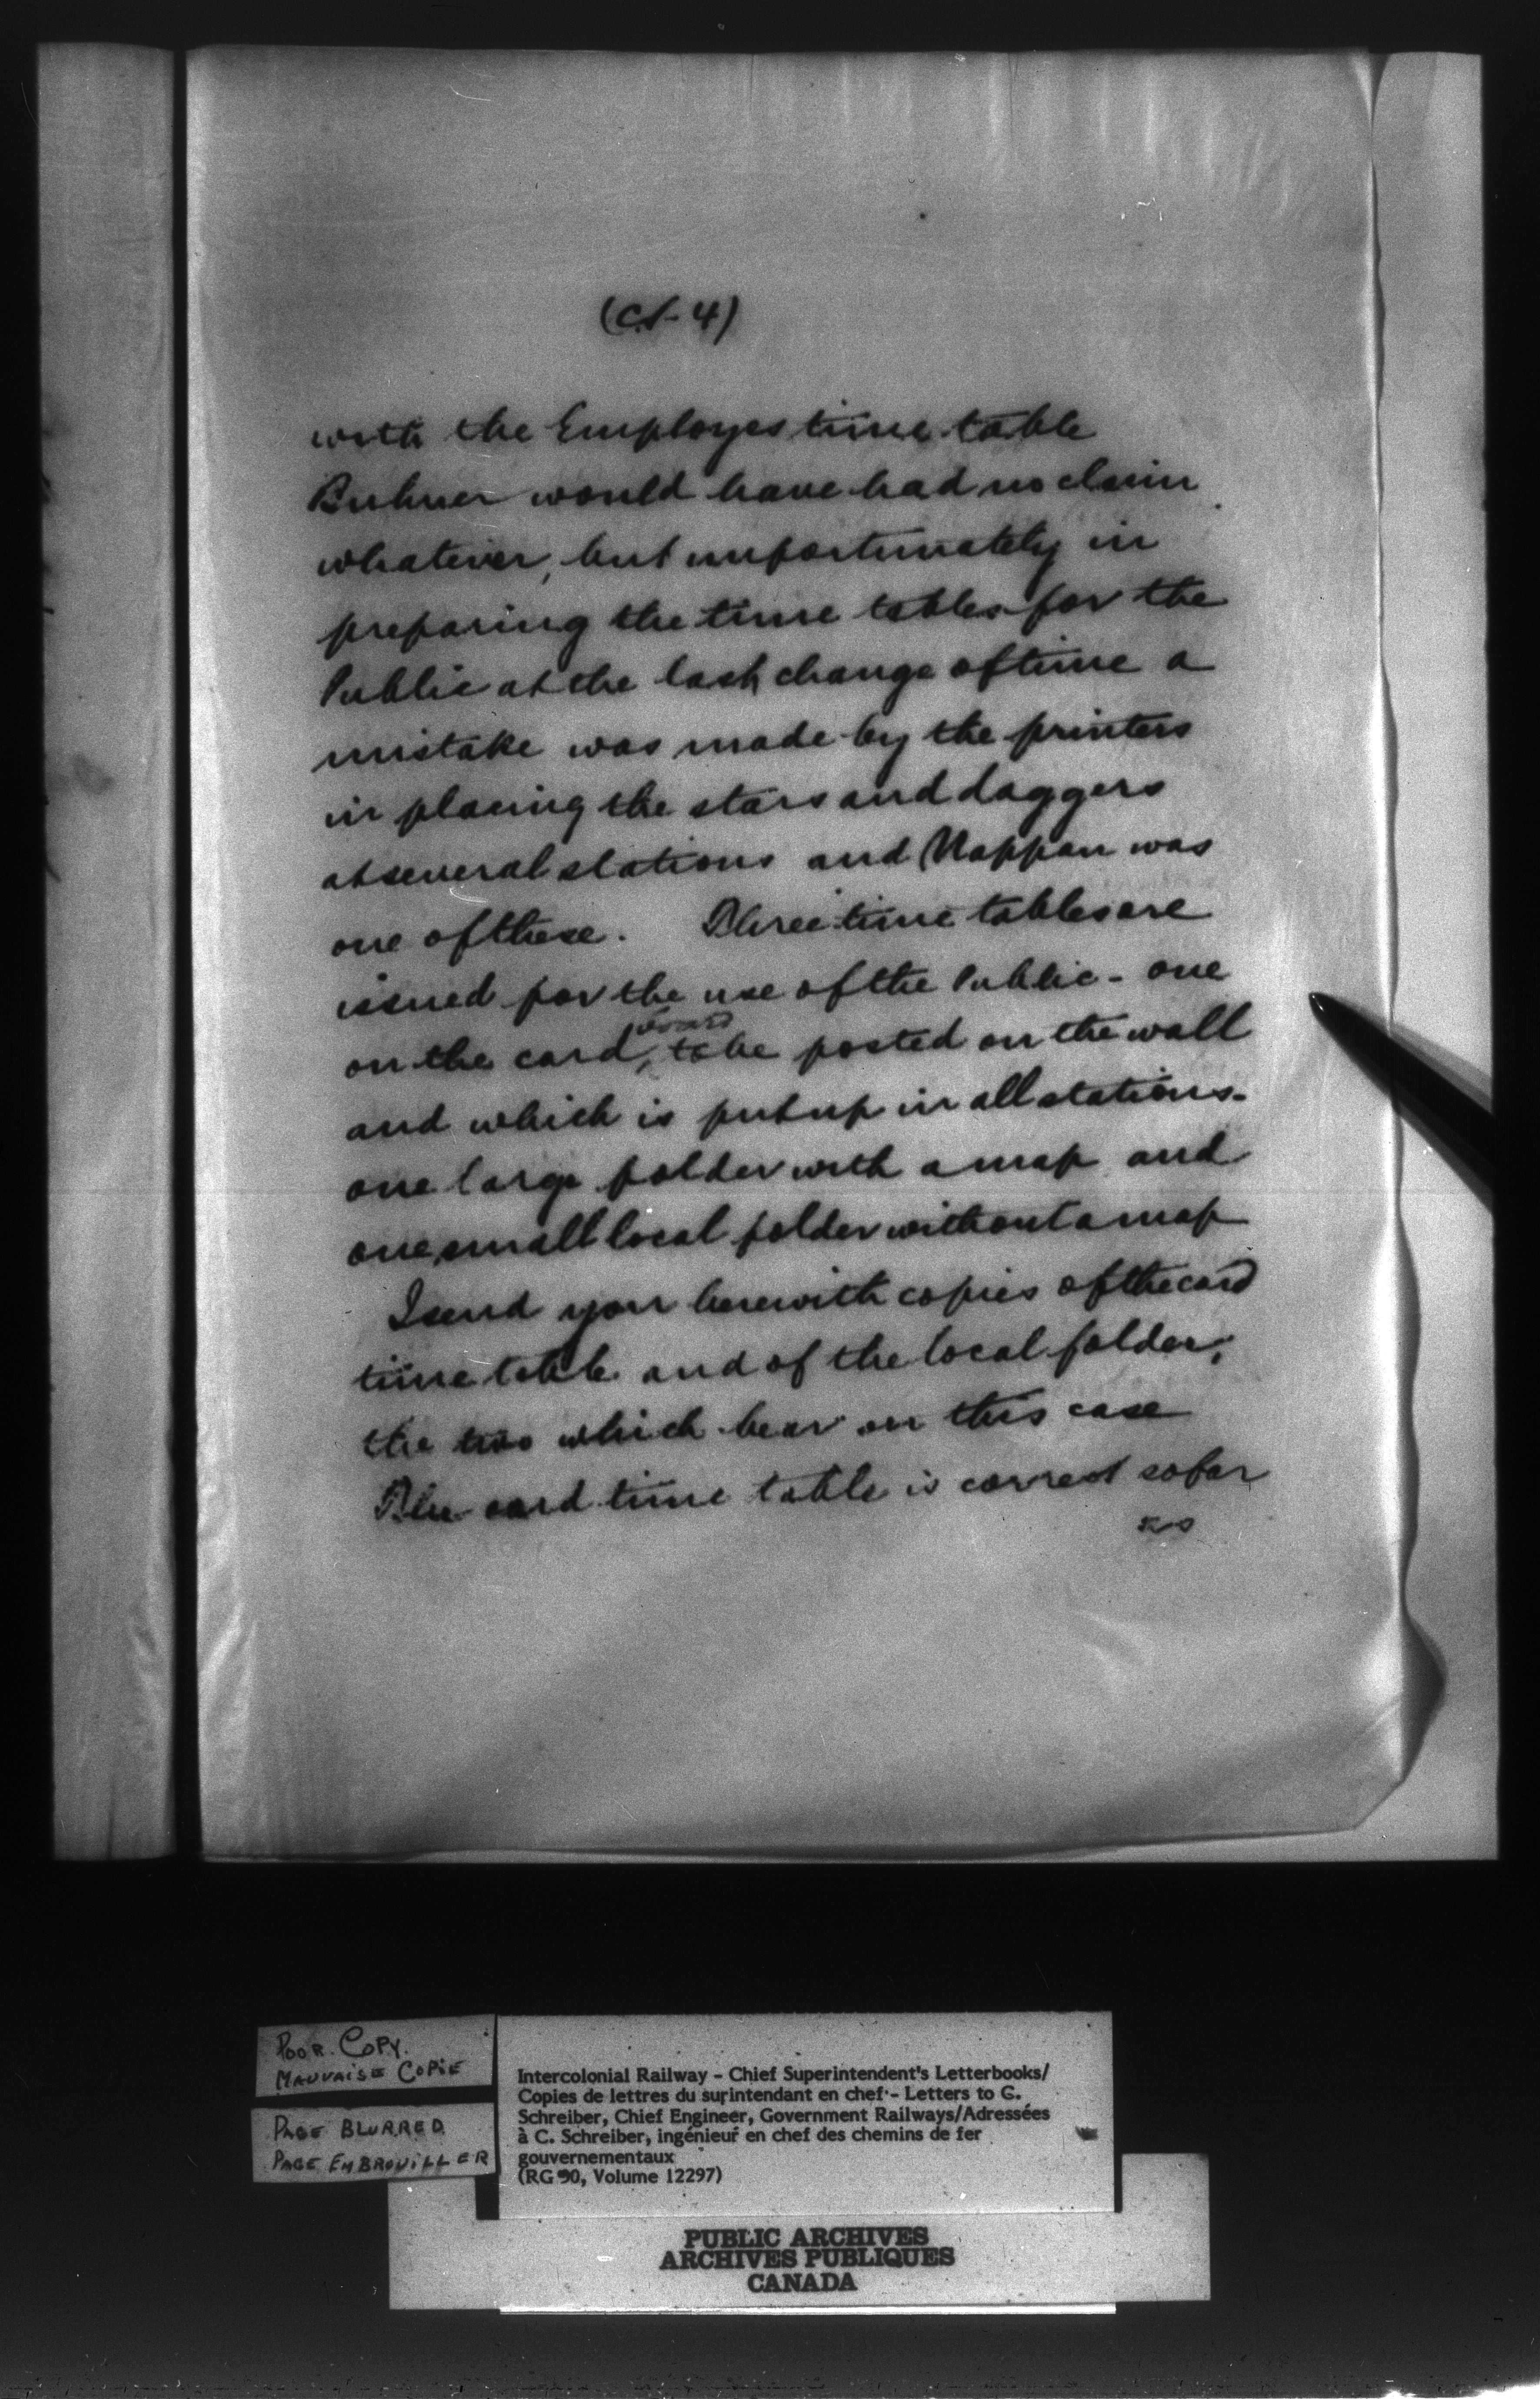 (C.S-4)
with the Employes time table
Buhner would have had no claim
whatever, but unfortunately in
preparing the time tables for the
Public at the last change of time a
mistake was made by the printers
in placing the stars and daggers
at several stations and Nappan was
one of these. Three time tables are
issued for the use of the Public - one
board
on the card, to be posted on the wall
and which is put up in all stations -
one large folder with a map and
one small local folder without a map
I send you herewith copies of the card
time table and of the local folder,
the two which bear on this case
The card time table is correct so far
as
POOR COPY.
MAUVAISE COPIE
PAGE BLURRED
PAGE EMBROUILLER
Intercolonial Railway - Chief Superintendent's Letterbooks/
Copies de lettres du surintendant en chef - Letters to G.
Schreiber, Chief Engineer, Government Railways/Adressées
à C. Schreiber, ingénieur en chef des chemins de fer
gouvernementaux
(RG 30, Volume 12297)
PUBLIC ARCHIVES
ARCHIVES PUBLIQUES
CANADA